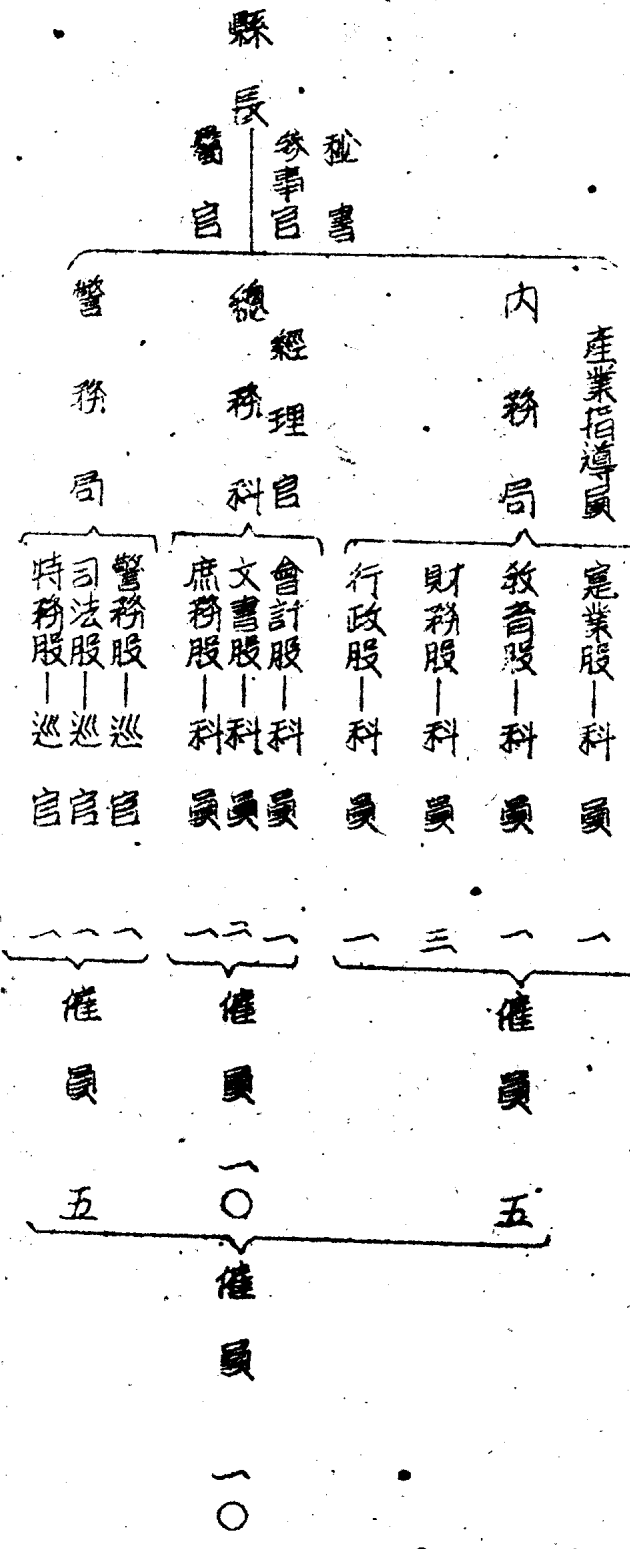 縣長
秘書
參事官
警官
産業指導員
内務局
經理官
總務科
警務局
寔業股―科員 一
敎育股―科員 一
財務股―科員 三
行政股―科員 一
會計股―科員 一
文書股―科員 二
庶務股―科員 一
警務股―巡官 一
司法股―巡官 一
特務股―巡官 一
僱員 五
僱員 一〇
僱員 五
僱員 一〇